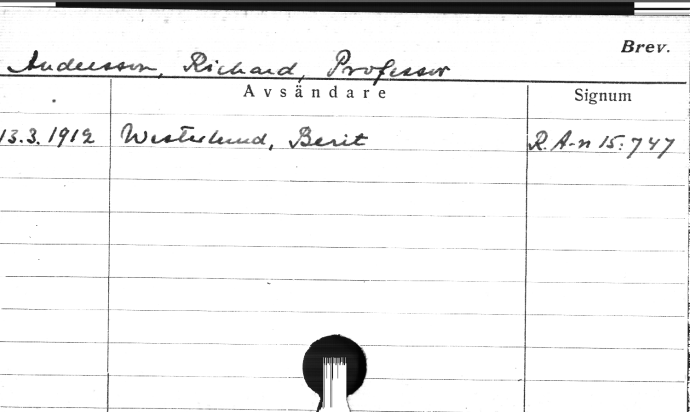 Brev.
Andersson, Richard, Professor
Avsändare Signum
13.3.1912 Westerlund, Berit R.A-n 15:747